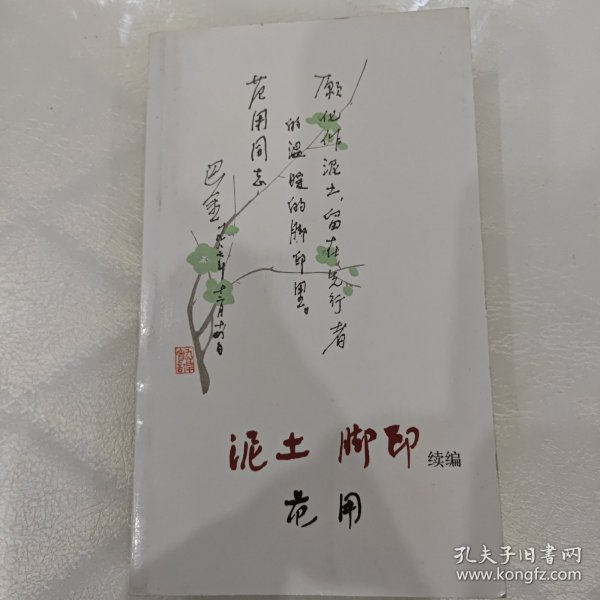 愿化作泥土，留在先行者
的温暖的脚印里。
范用同志
巴金
一九八七年十二月
泥土 脚印 续编
范用
孔夫子旧书网
www.kongfz.com